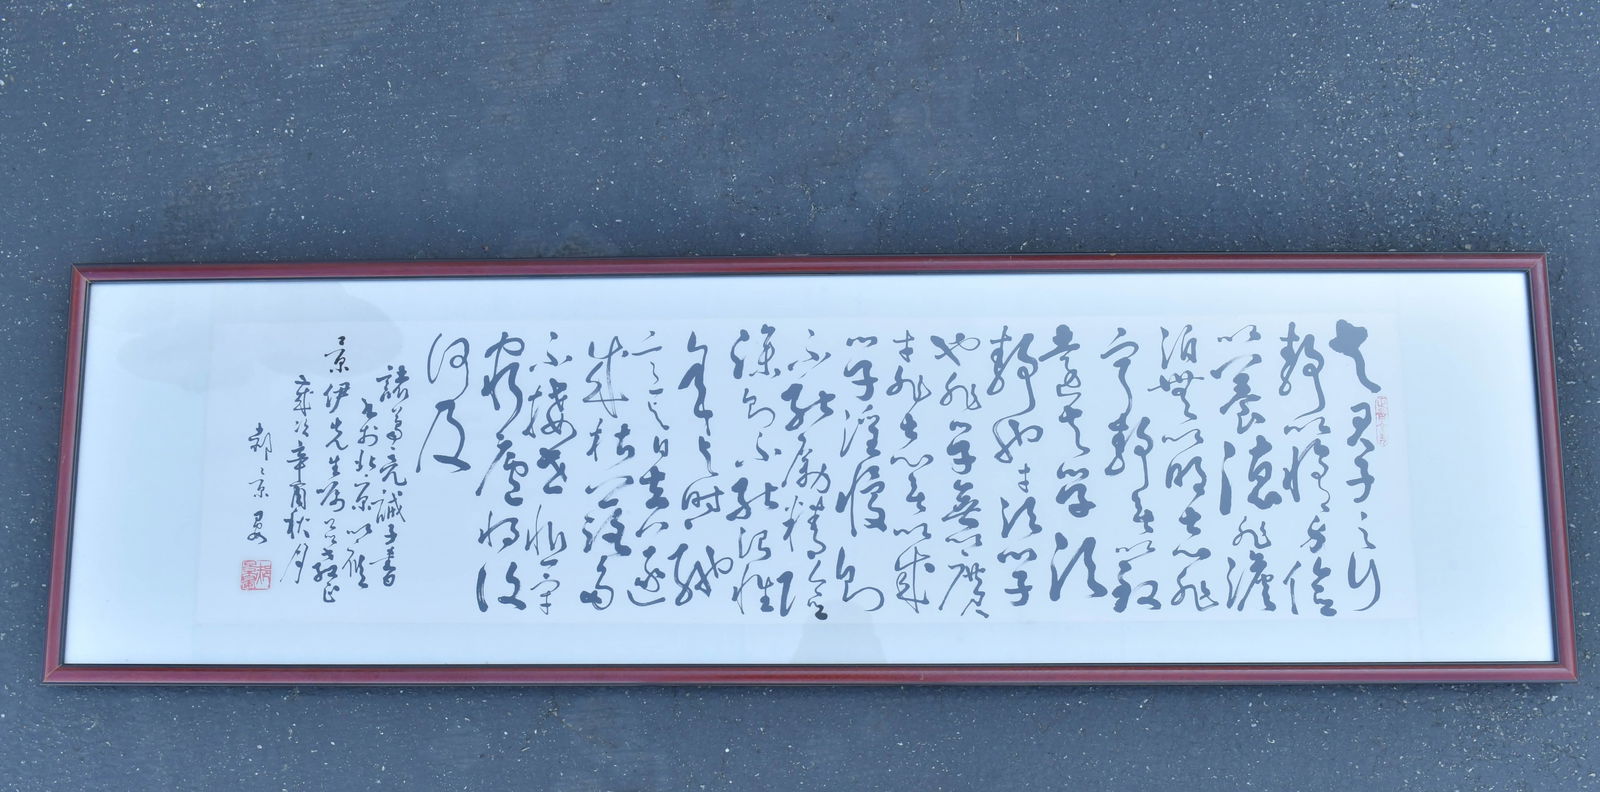 夫君子之行
靜以修身儉
以養德非澹
泊無以明志非
寧靜無以致
遠夫學須
靜也才須學
也非學無以廣
才非志無以成
學淫慢則
不能勵精險
躁則不能治性
年與時馳
意與日去遂
成枯落多
不接世悲守
窮廬將復
何及
諸葛亮誡子書
書於北京以應
景伊先生囑教正
歲次辛酉秋月